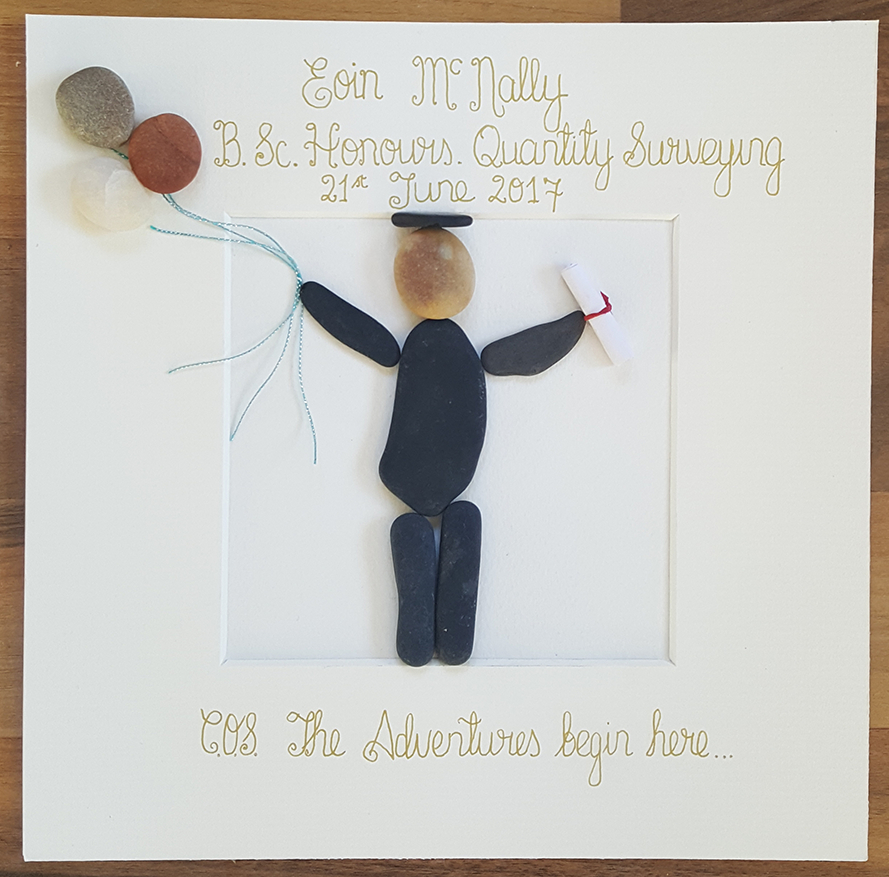 Eoin McNally
B.Sc. Honours. Quantity Surveying
21st June 2017
C.O.S. The Adventures begin here...